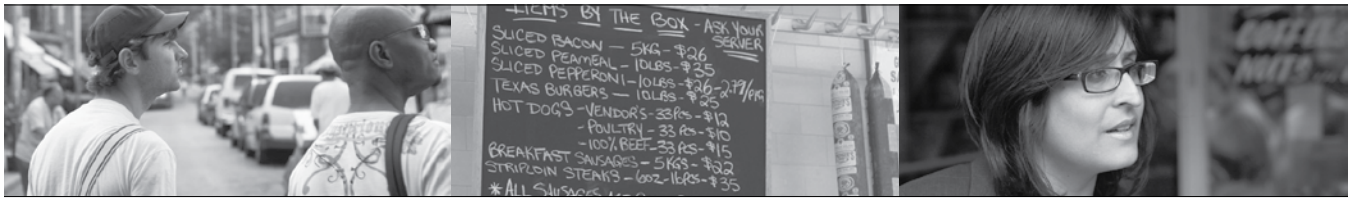 ITEMS BY THE BOX - ASK YOUR
SERVER
SLICED BACON — 5KG - $26
SLICED PEAMEAL — 10LBS - $35
SLICED PEPPERONI - 10LBS - $26 - 2.79/PKG
TEXAS BURGERS — 10LBS - $25
HOT DOGS - VENDOR'S - 33PCS - $12
- POULTRY - 33 PCS - $10
- 100% BEEF - 33 PCS - $15
BREAKFAST SAUSAGES - 5KGS - $22
STRIPLOIN STEAKS - 6OZ - 16PCS - $35
* ALL SAUSAGES